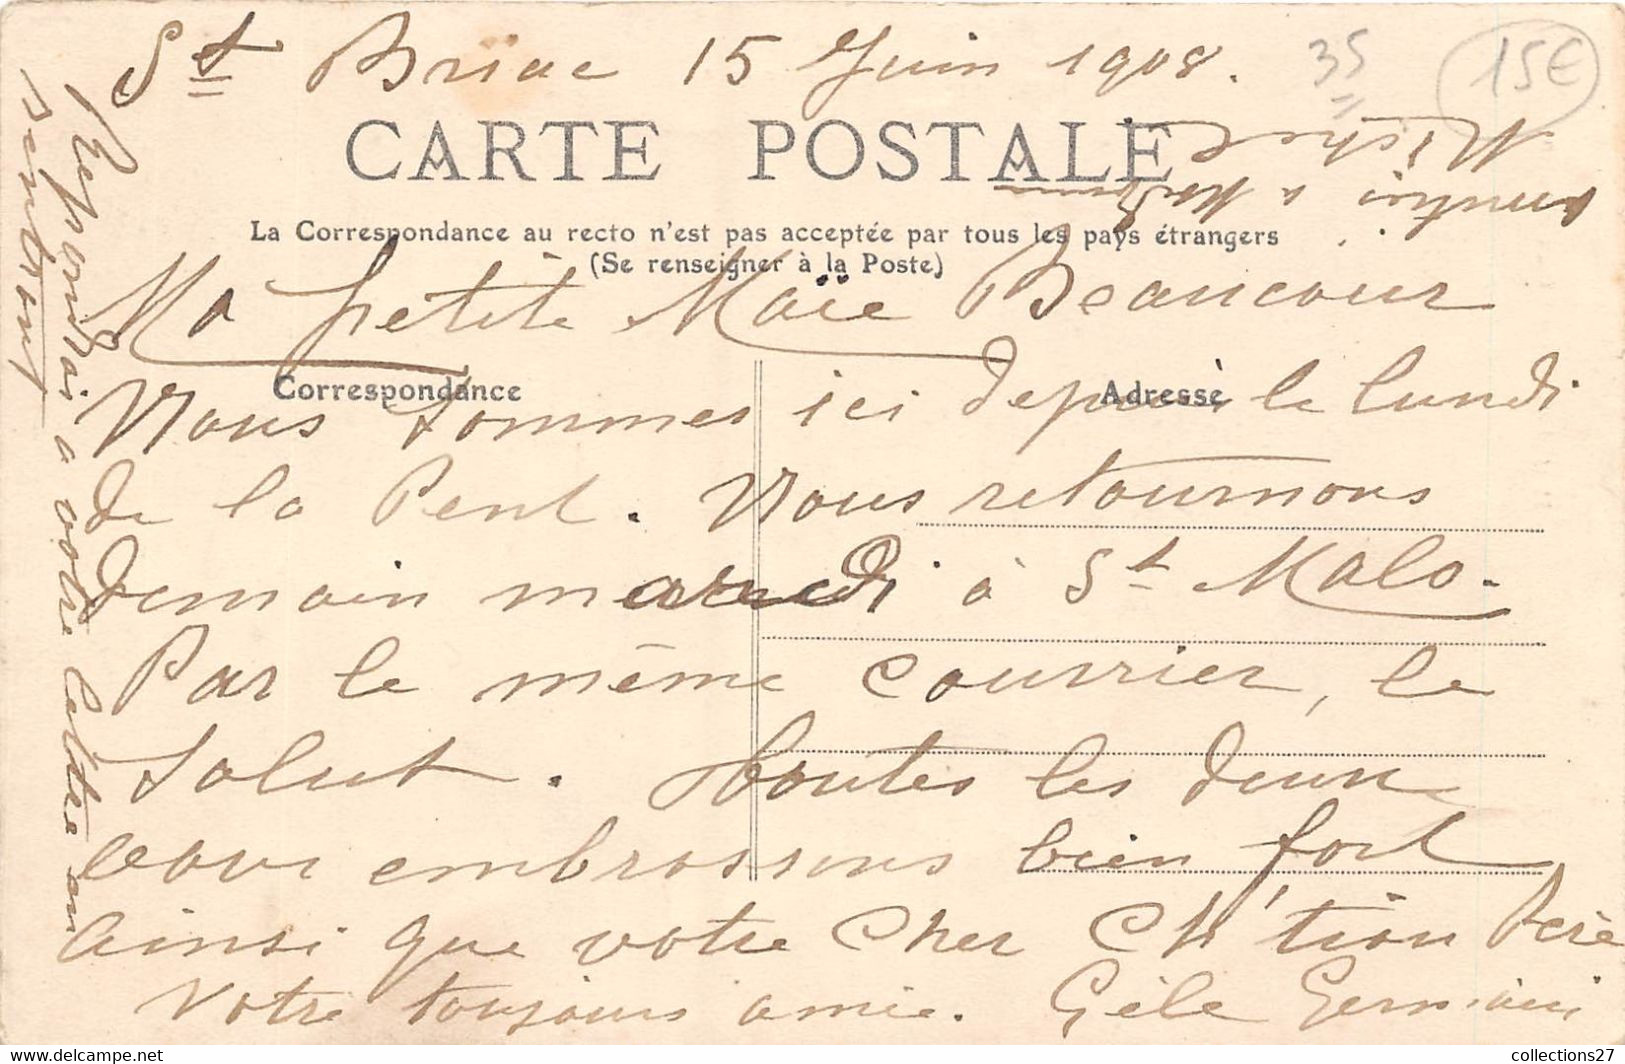 St Briac 15 Juin 1908.
35
15€
CARTE POSTALE
La Correspondance au recto n'est pas acceptée par tous les pays étrangers
(Se renseigner à la Poste)
Ma petite Maïe Beaucour
Correspondance
Adresse
Nous sommes ici depuis le lundi
de la Pent. Nous retournons
demain mardi à St Malo.
Par le même courrier, le
Salut. Toutes les deux
vous embrassons bien fort
ainsi que votre cher Ch'tiou Père
Votre toujours amie. Gèle Germain
Repondrai à votre lettre en
rentrant
collections27